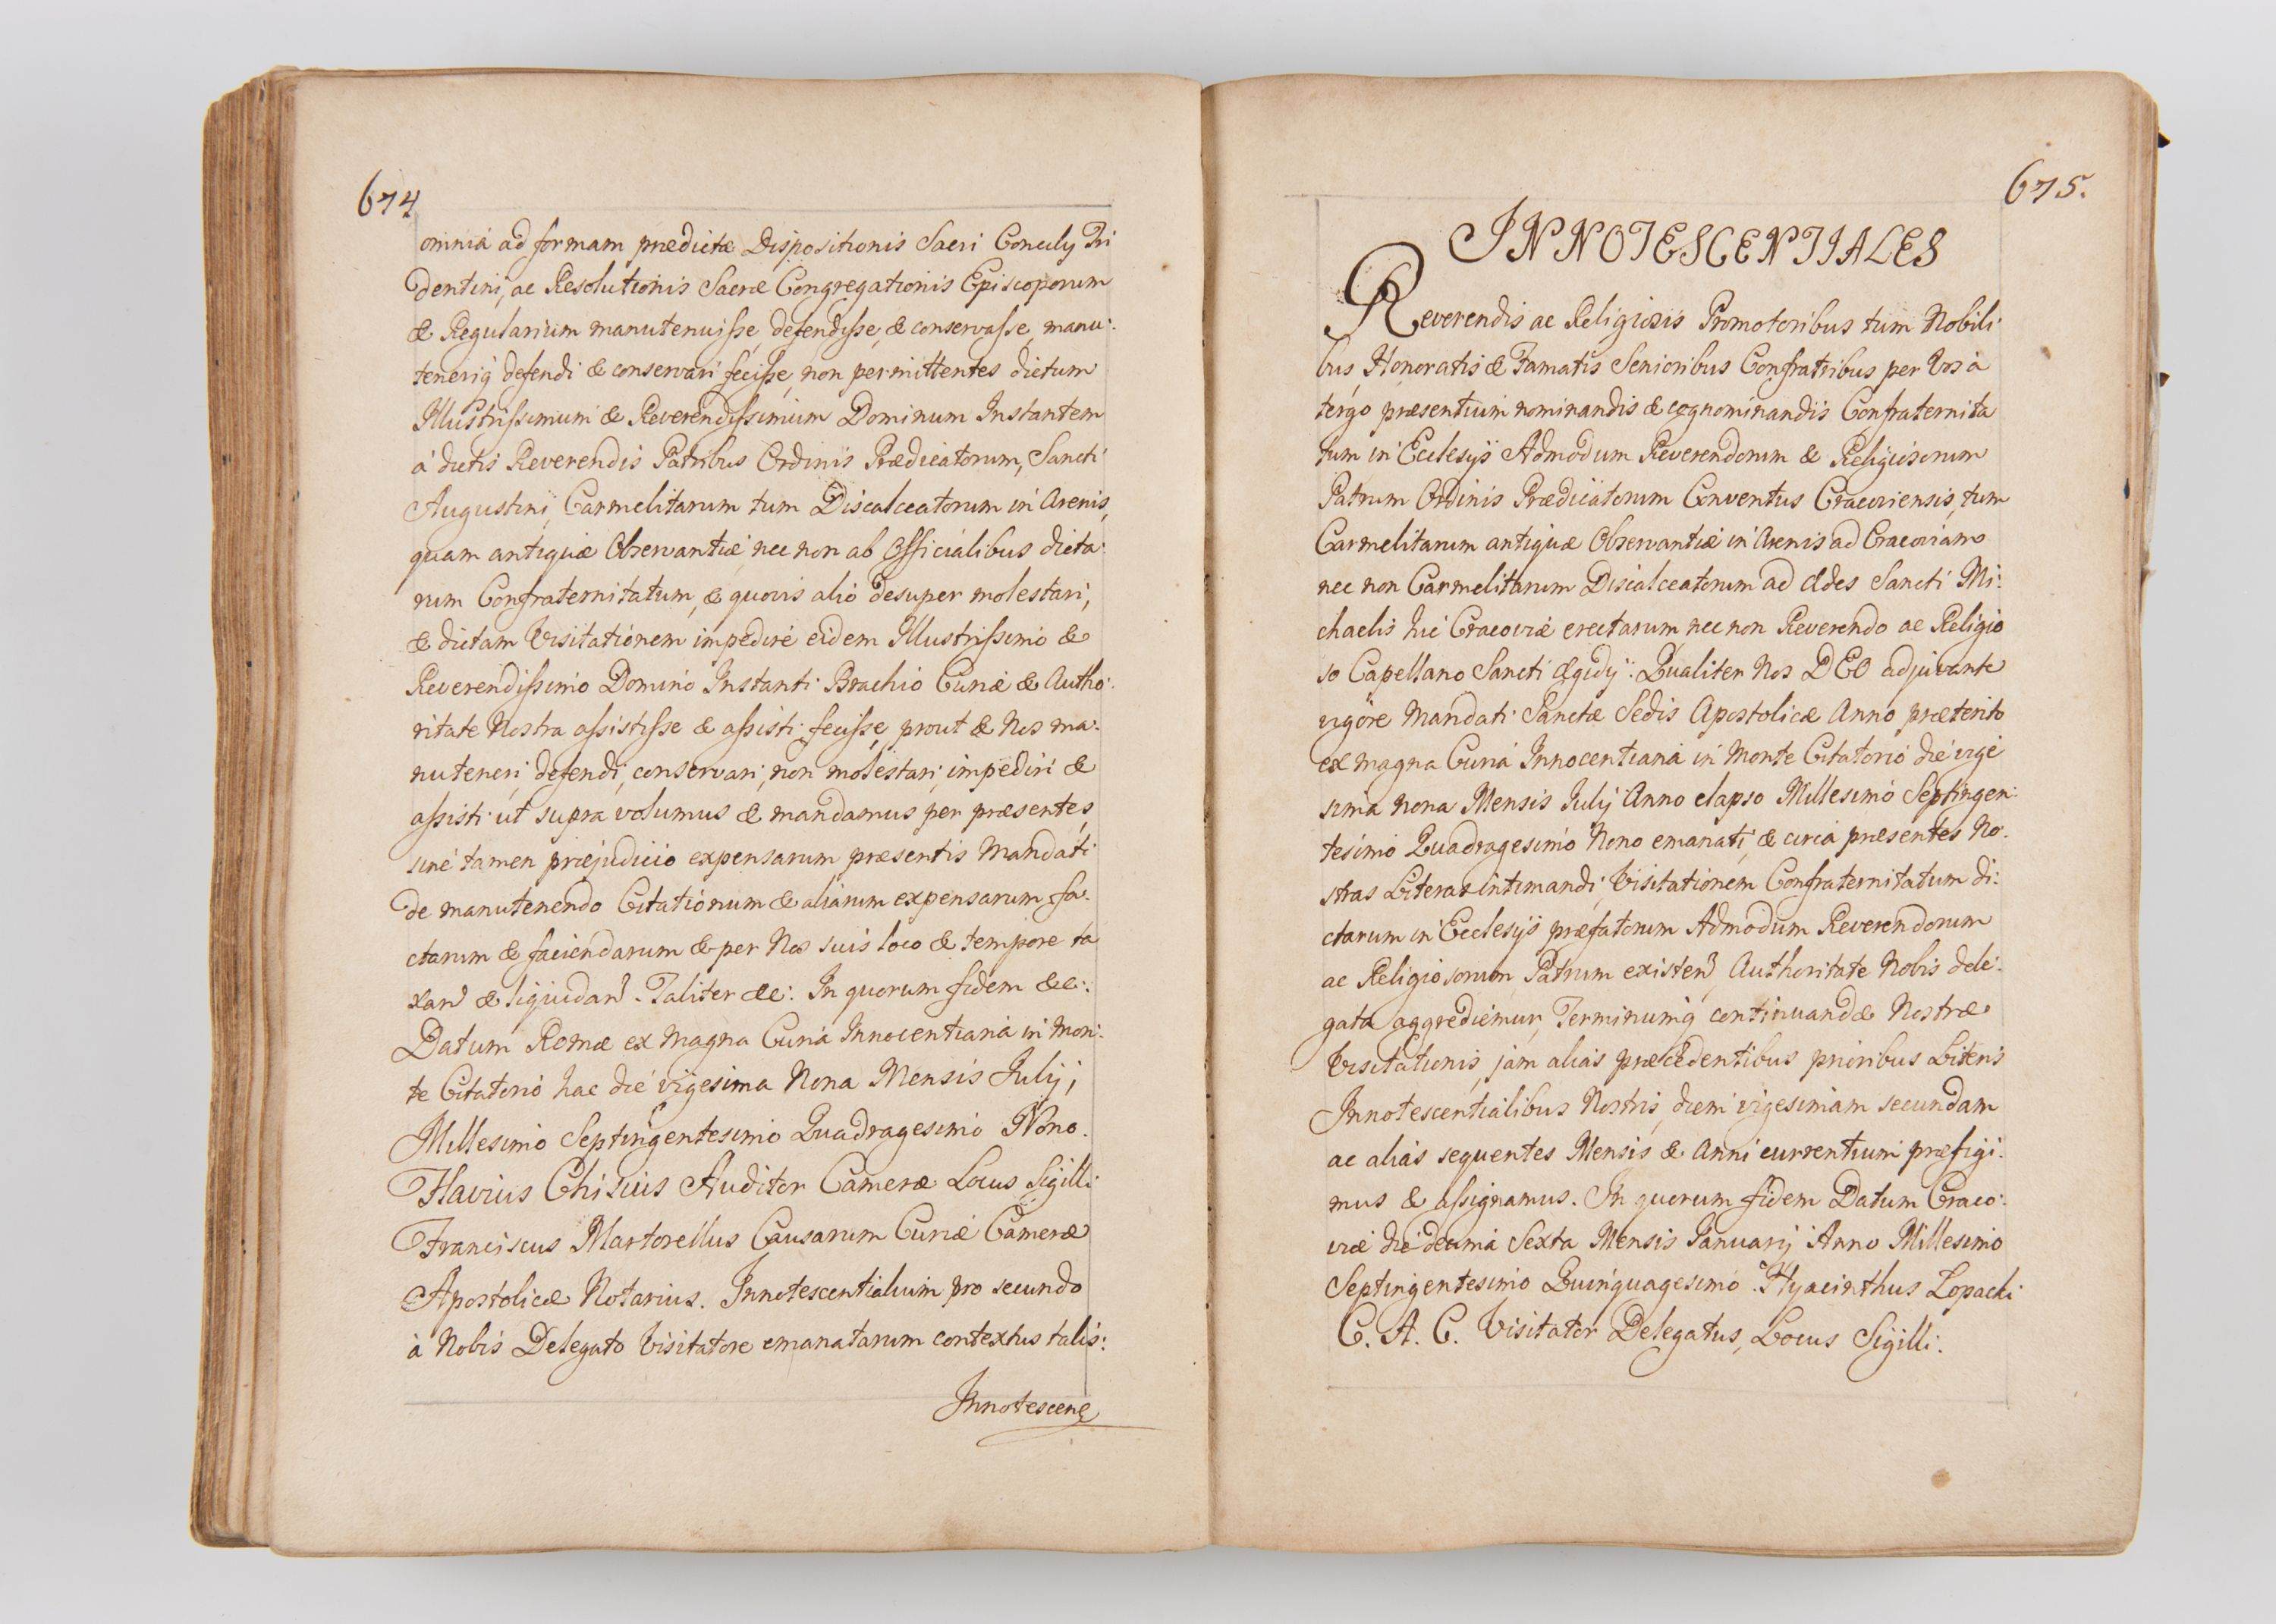 674
omnia ad formam prædictæ Dispositionis Sacri Concily Tri
dentini, ac Resolutionis Sacræ Congregationis Episcoporum
& Regularium manutenuisse, defendisse, & conservasse, manu:
teneriq defendi & conservari fecisse, non permittentes dictum
Illustrissimum & Reverendissimum Dominum Instantem
à dictis Reverendis Patribus Ordinis Prædicatorum, Sancti
Augustini, Carmelitarum tum Discalceatorum in Arenis,
quam antiquæ Observantiæ, nec non ab Officialibus dicta:
rum Confraternitatum, & quovis alio desuper molestari,
& dictam Visitationem impedire eidem Illustrissimo &
Reverendissimo Domino Instanti Brachio Curiæ & Autho:
ritate Nostra assistisse & assisti fecisse, prout & Nos ma:
nuteneri, defendi, conservari, non molestari, impediri &
assisti ut supra volumus & mandamus per præsentes,
sine tamen præjudicio expensarum præsentis Mandati
de manutenendo Citationum & aliarum expensarum fa:
ctarum & faciendarum & per Nos suis loco & tempore ta
xan & liquidan. Taliter &c: In quorum fidem &c:
Datum Romæ ex Magna Curia Innocentiana in Mon:
te Citatorio hac die vigesima Nona Mensis Julij,
Millesimo Septingentesimo Quadragesimo Nono.
Flavius Chisius Auditor Cameræ Locus Sigilli
Franciscus Martorellus Causarum Curiæ Cameræ
Apostolicæ Notarius. Innotescentialium pro secundo
à Nobis Delegato Visitatore emanatarum contextus talis:
Innotescen
675.
INNOTESCENTIALES
Reverendis ac Religiosis Promotoribus tum Nobili:
bus, Honoratis & Famatis Senioribus Confratribus per Vos à
tergo præsentium nominandis & cognominandis Confraternita
tum in Ecclesijs Admodum Reverendorum & Religiosorum
Patrum Ordinis Prædicatorum Conventus Cracoviensis, tum
Carmelitarum antiquæ Observantiæ in Arenis ad Cracoviam
nec non Carmelitarum Discalceatorum ad Ædes Sancti Mi:
chaelis hic Cracoviæ erectarum nec non Reverendo ac Religio
so Capellano Sancti Ægidij: Qualiter Nos DEO adjuvante
vigore Mandati Sanctæ Sedis Apostolicæ Anno præterito
ex magna Curia Innocentiana in Monte Citatorio die vige
sima nona Mensis Julij Anno elapso Millesimo Septingen:
tesimo Quadragesimo Nono emanati, & circa præsentes No:
stras Literas intimandi, Visitationem Confraternitatum di:
ctarum in Ecclesijs præfatorum Admodum Reverendorum
ac Religiosorum Patrum existen Authoritate Nobis dele:
gata aggrediemur, Terminumq continuandæ Nostræ
Visitationis, jam alias præcedentibus prioribus Literis
Innotescentialibus Nostris, diem vigesimam secundam
ac alias sequentes Mensis & Anni currentium præfigi:
mus & assignamus. In quorum fidem Datum Craco:
viæ die decima Sexta Mensis Januarij Anno Millesimo
Septingentesimo Quinquagesimo. Hyacinthus Lopacki
C. A. C. Visitator Delegatus, Locus Sigilli.